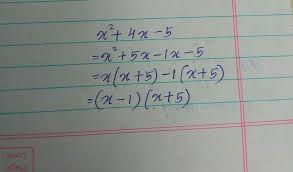 x² + 4x - 5
= x² + 5x - 1x - 5
= x(x + 5) - 1(x + 5)
= (x - 1)(x + 5)